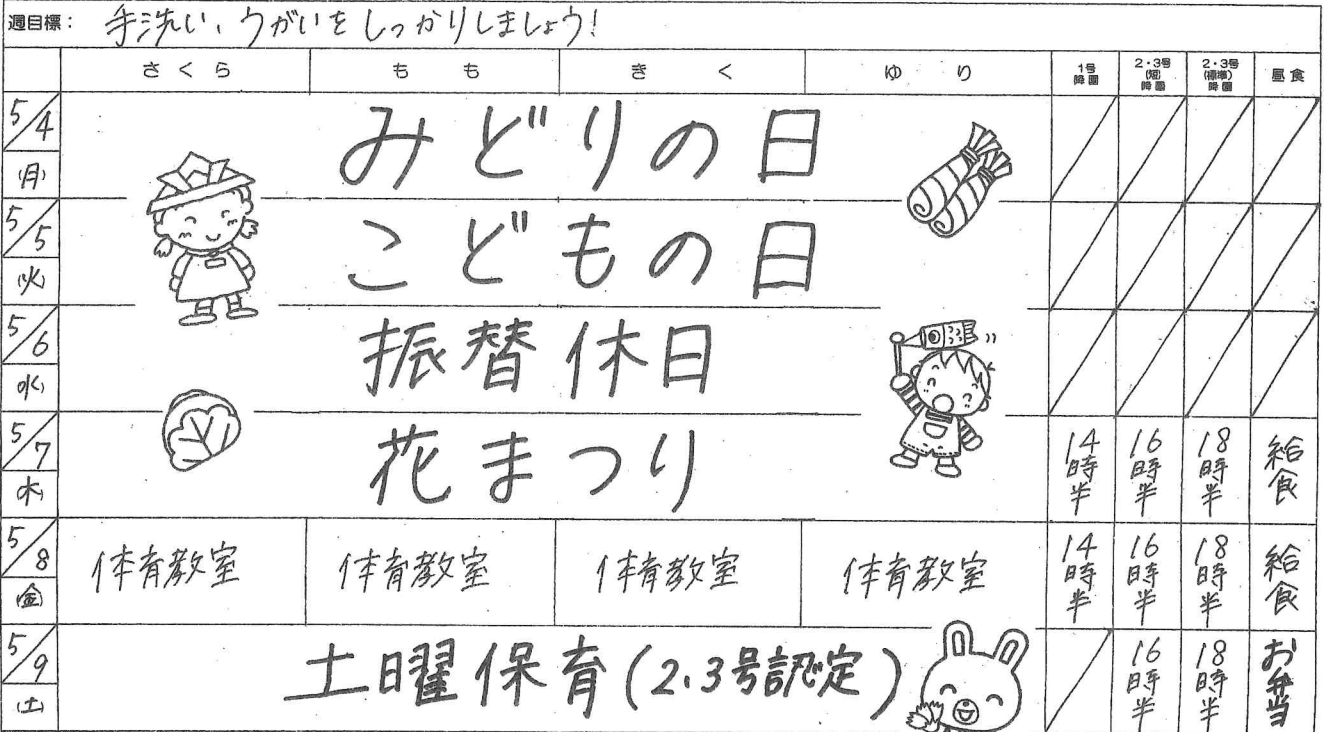 週目標: 手洗い、うがいをしっかりしましょう!
さくら もも きく ゆり 1号降園 2・3号(短)降園 2・3号(標準)降園 昼食
5/4 (月) みどりの日
5/5 (火) こどもの日
5/6 (水) 振替休日
5/7 (木) 花まつり 14時半 16時半 18時半 給食
5/8 (金) 体育教室 体育教室 体育教室 体育教室 14時半 16時半 18時半 給食
5/9 (土) 土曜保育(2.3号認定) 16時半 18時半 お弁当